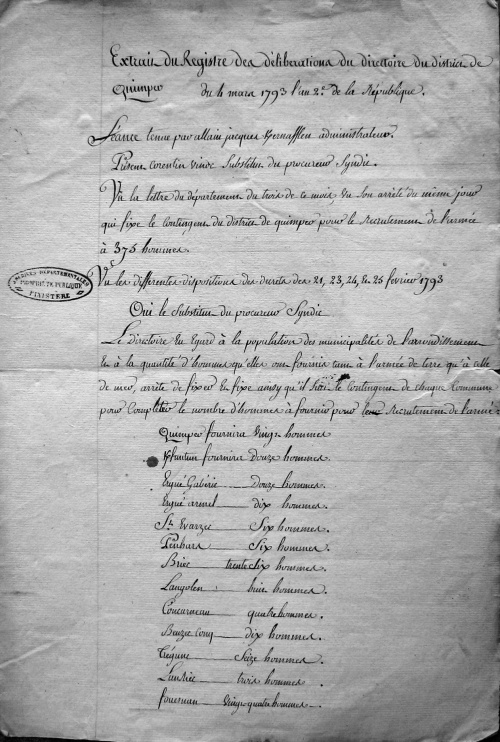 Extrait du Registre des déliberations du directoire du district de
Quimper du 4 mars 1793 l'an 2e de la République.
Séance tenue par allain jacques Kernafflen administrateur.
Présent corentin vinoc Substitut du procureur Syndic.
Vu la lettre du département du trois de ce mois, vu son arrêté du même jour
qui fixe le contingent du district de quimper pour le recrutement de l'armée
à 375 hommes.
Vu les differentes dispositions des decrets des 21, 23, 24, & 25 fevrier 1793
ARCHIVES DÉPARTEMENTALES
PROPRIÉTÉ PUBLIQUE
FINISTERE
Oui le Substitut du procureur Syndic
Le Directoire Eu Egard à la population des municipalités de l'arrondissement
Et à la quantité d'hommes qu'elles ont fournis tant à l'armée de terre qu'à celle
de mer, arrête de fixer Et fixe ainsy qu'il suit le contingent de chaque Commune
pour Completter le nombre d'hommes à fournir pour leur recrutement de l'armée :
Quimper fournira vingt hommes
Kfeunteun fournira Douze hommes.
Ergué Gabéric Douze hommes.
Ergué armel dix hommes.
St. Evarzec Six hommes.
Penhars Six hommes.
Briec trente six hommes.
Langolen huit hommes.
Concarneau quatre hommes.
Beuzec Conq dix hommes.
Trégunc Seize hommes.
Lanriec trois hommes.
fouesnan vingt quatre hommes